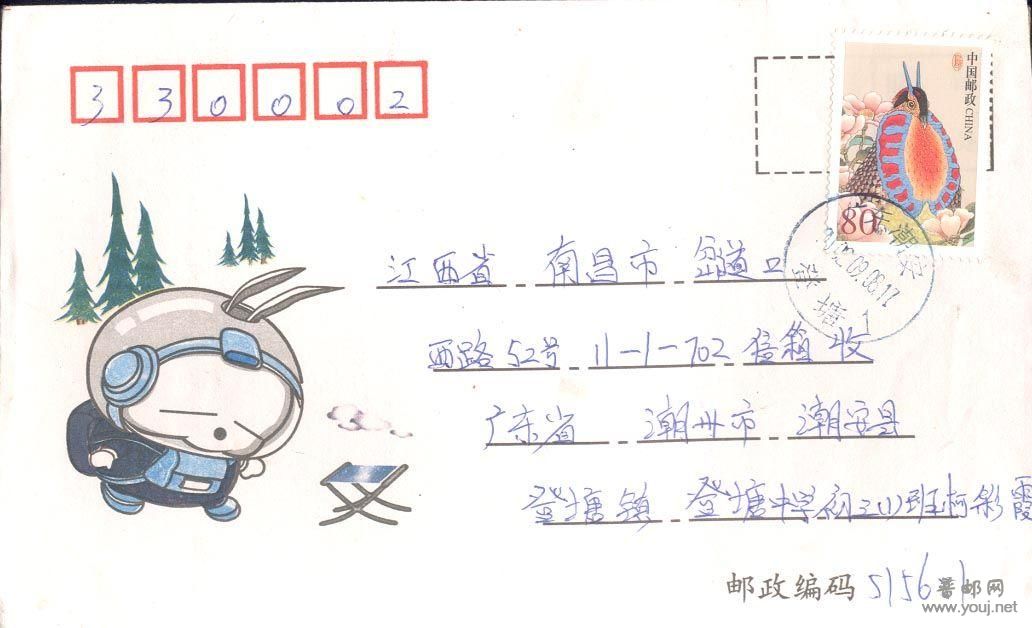 330002
中国邮政 CHINA
80
广东潮安
09.08.17
登塘 1
江西省 南昌市 岔道口
西路52号 11-1-702 信箱 收
广东省 潮州市 潮安县
登塘镇 登塘中学初三(1)班柯彩霞
邮政编码 5156
普邮网
www.youj.net